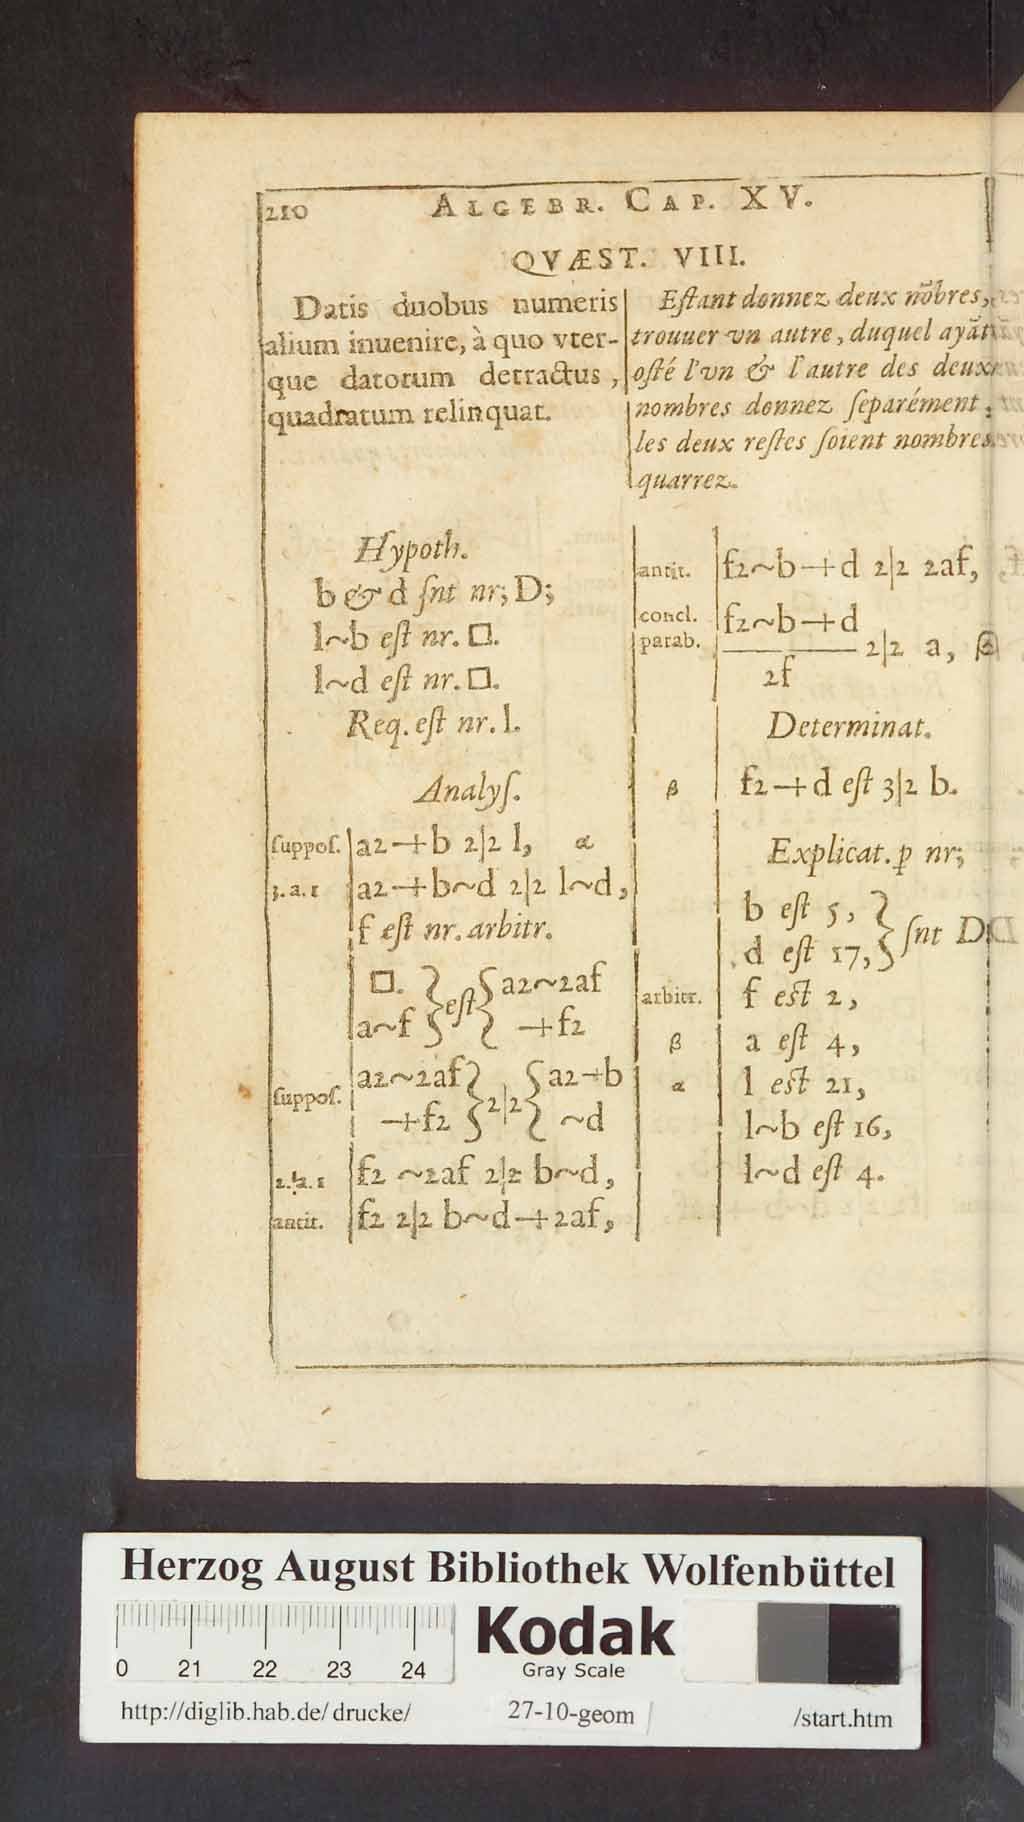 210 ALGEBR. CAP. XV.
QVÆST. VIII.
Datis duobus numeris
alium inuenire, à quo vter-
que datorum detractus,
quadratum relinquat.
Eſtant donnez deux nõbres,
trouuer vn autre, duquel ayãt
oſté l'vn & l'autre des deux
nombres donnez ſeparément,
les deux reſtes ſoient nombres
quarrez.
Hypoth.
b & d ſnt nr; D;
l~b eſt nr. □.
l~d eſt nr. □.
Req. eſt nr. l.
Analyſ.
ſuppoſ. a2+b 2|2 l, α
3. a. 1 a2+b~d 2|2 l~d,
f eſt nr. arbitr.
□. } eſt { a2~2af
a~f } { +f2
ſuppoſ. a2~2af } 2|2 { a2+b
+f2 } { ~d
2. a. 1 f2 ~2af 2|2 b~d,
antit. f2 2|2 b~d+2af,
antit. f2~b+d 2|2 2af,
concl. f2~b+d
parab. 2|2 a, β
2f
Determinat.
β f2+d eſt 3|2 b.
Explicat. p nr;
b eſt 5, }
d eſt 17, } ſnt D;
arbitr. f eſt 2,
β a eſt 4,
α l eſt 21,
l~b eſt 16,
l~d eſt 4.
Herzog August Bibliothek Wolfenbüttel
Kodak
Gray Scale
0 21 22 23 24
http://diglib.hab.de/drucke/ 27-10-geom /start.htm